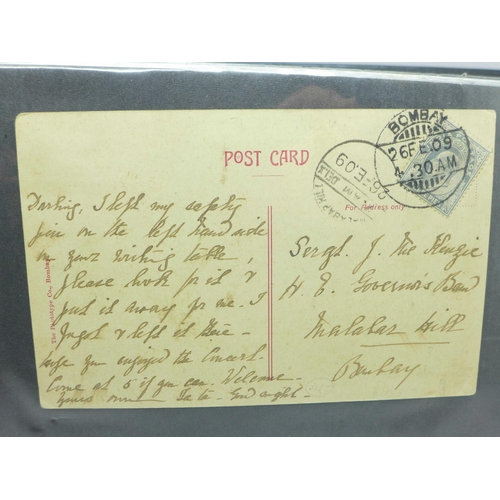 POST CARD
For Address only
BOMBAY
26 FE 09
4.30 A.M
26 FE 09
Darling, I left my safety
pin on the left hand side
on your writing table,
please look for it &
put it away for me. I
forgot & left it there -
hope you enjoyed the Concert.
Come at 5 if you can. Welcome -
Yours
Sergt. J. Mc Kenzie
H. E. Governor's Band
Malabar Hill
Bombay
The Phototype Co., Bombay